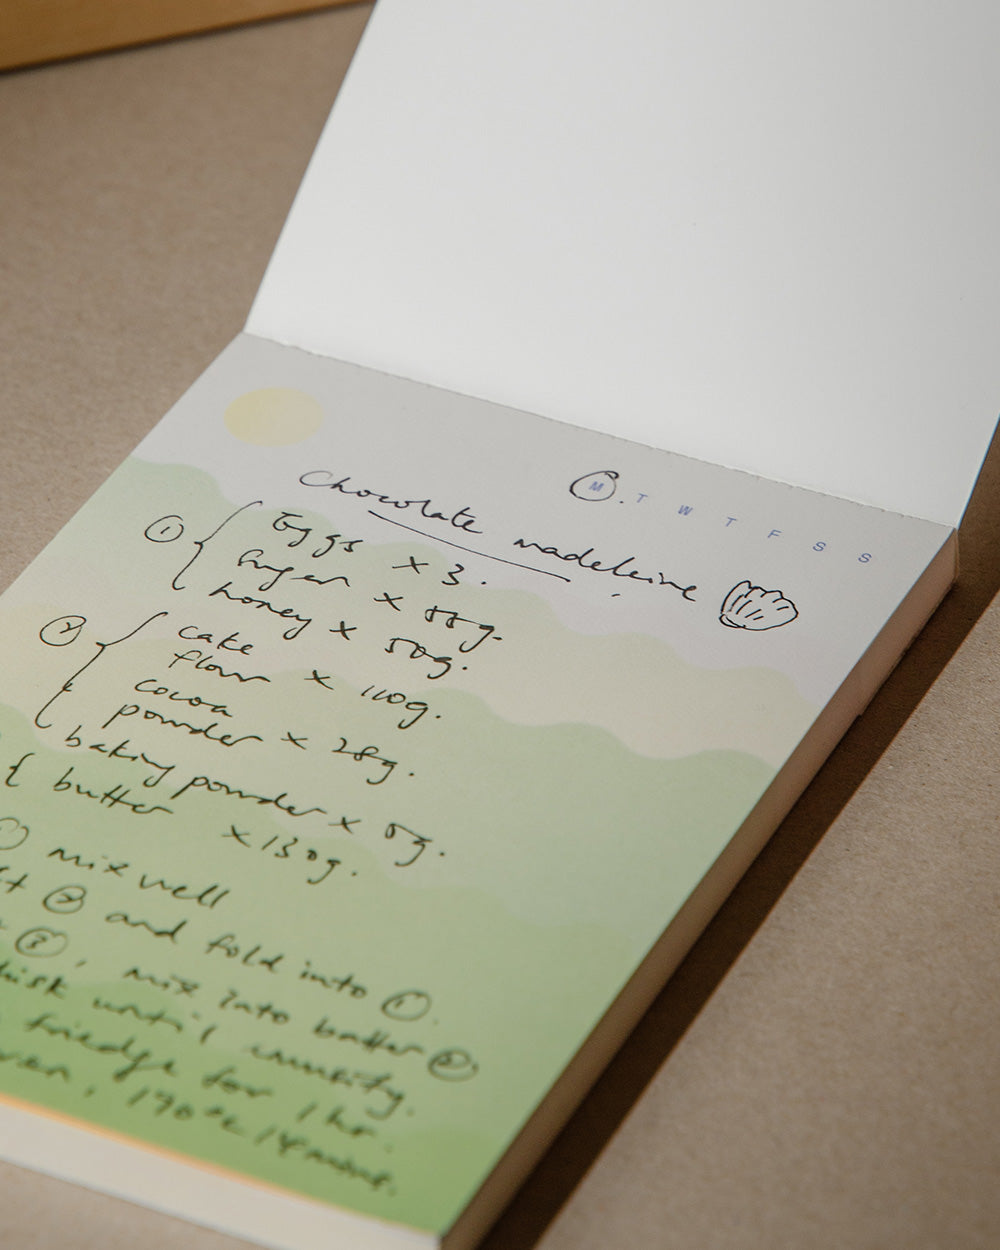 M T W T F S S
Chocolate madeleine
① Eggs × 3.
sugar × 55g.
honey × 50g.
② cake
flour × 110g.
cocoa
powder × 28g.
baking powder × 5g.
butter × 130g.
mix well
② and fold into ①.
mix into batter
until
friedge for 1 hr.
190°c 14 mins.